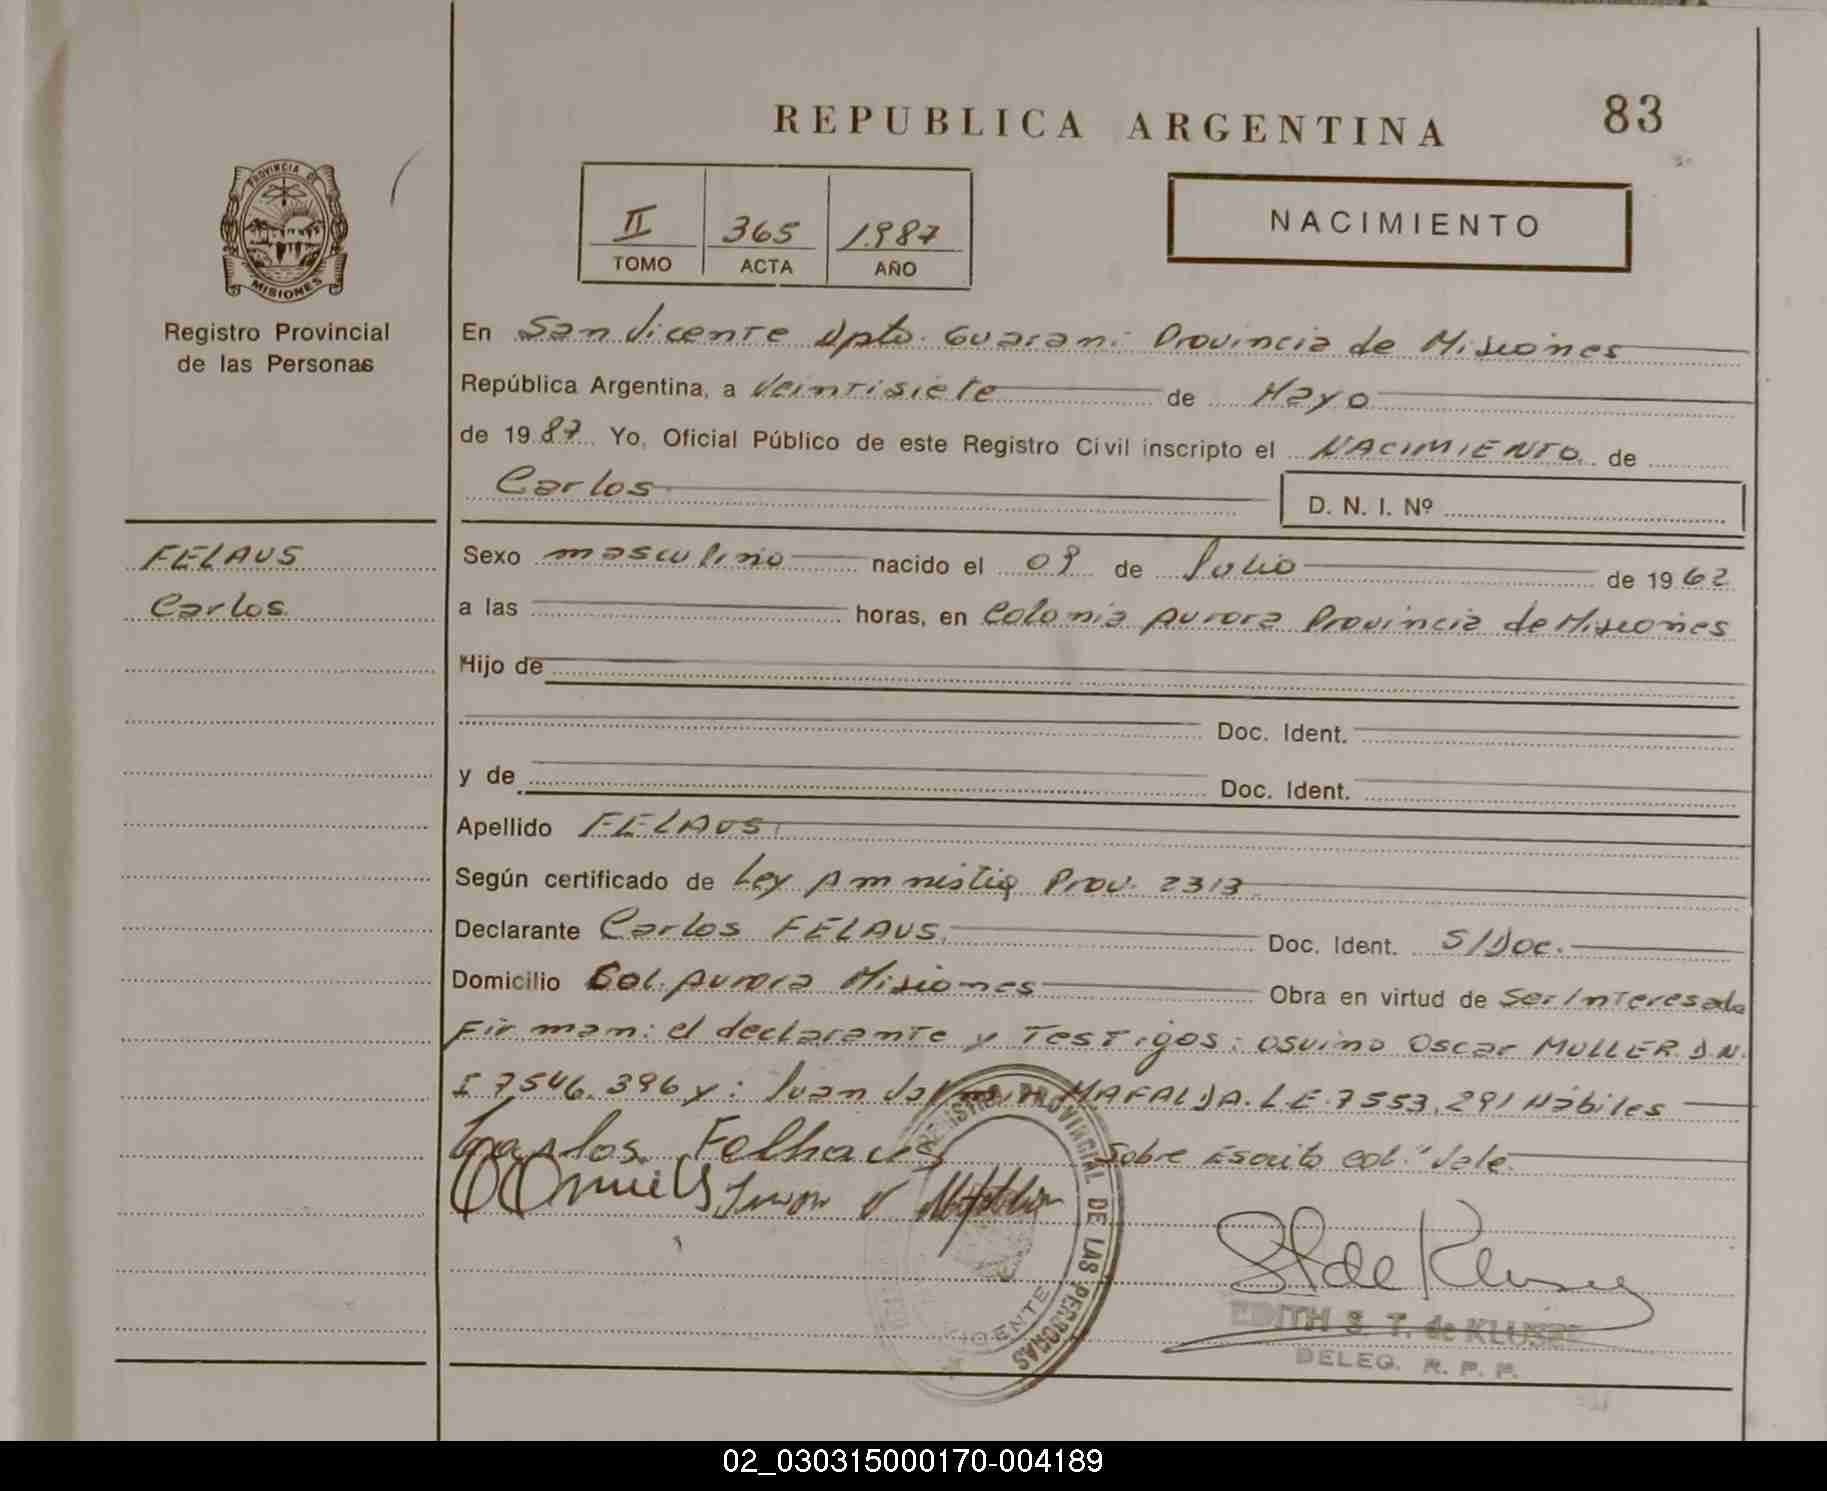 REPUBLICA ARGENTINA
83
PROVINCIA DE
MISIONES
Registro Provincial
de las Personas
II 365 1987
TOMO ACTA AÑO
NACIMIENTO
En San Vicente Dpto. Guarani Provincia de Misiones
República Argentina, a Veintisiete de Mayo
de 1987 Yo, Oficial Público de este Registro Civil inscripto el NACIMIENTO de
Carlos D. N. I. Nº
FELAUS
Carlos
Sexo masculino nacido el 09 de Julio de 1962
a las horas, en Colonia Aurora Provincia de Misiones
Hijo de
Doc. Ident.
y de Doc. Ident.
Apellido FELAUS
Según certificado de Ley Amnistia Prov. 2313
Declarante Carlos FELAUS. Doc. Ident. S/Doc.
Domicilio Col. Aurora Misiones Obra en virtud de Ser Interesado
Firman: el declarante y Testigos: Osvino Oscar MULLER D.N.
I 7546.396 y: Juan Valmin MAFALDA. L.E. 7553.291 Hábiles
Carlos Felhaus Sobre Escrito Col." Vale.
REGISTRO PROVINCIAL DE LAS PERSONAS
VICENTE
EDITH S. T. de KLUSE
DELEG. R. P. P.
02_030315000170-004189